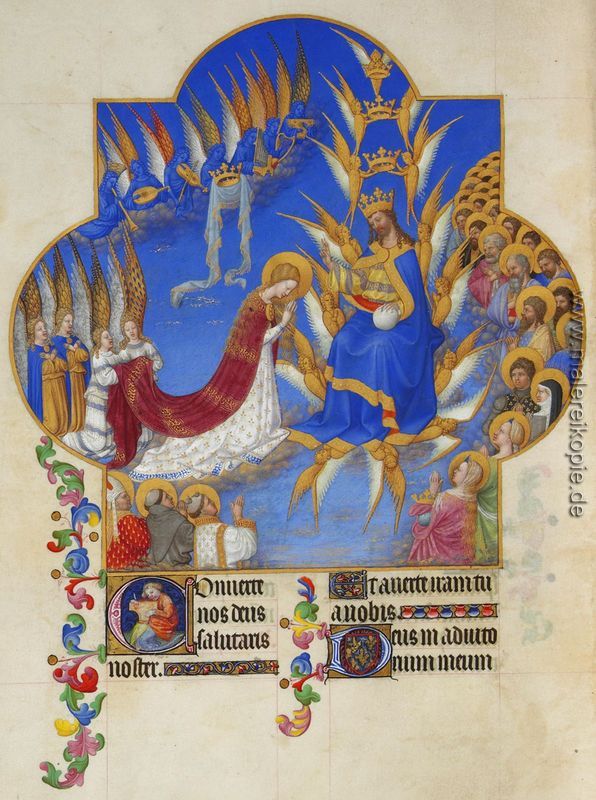 Onuerte
nos deus
salutaris
noster.
Et auerte iram tu
a nobis.
Deus in adiuto
rium meum
www.malereikopie.de